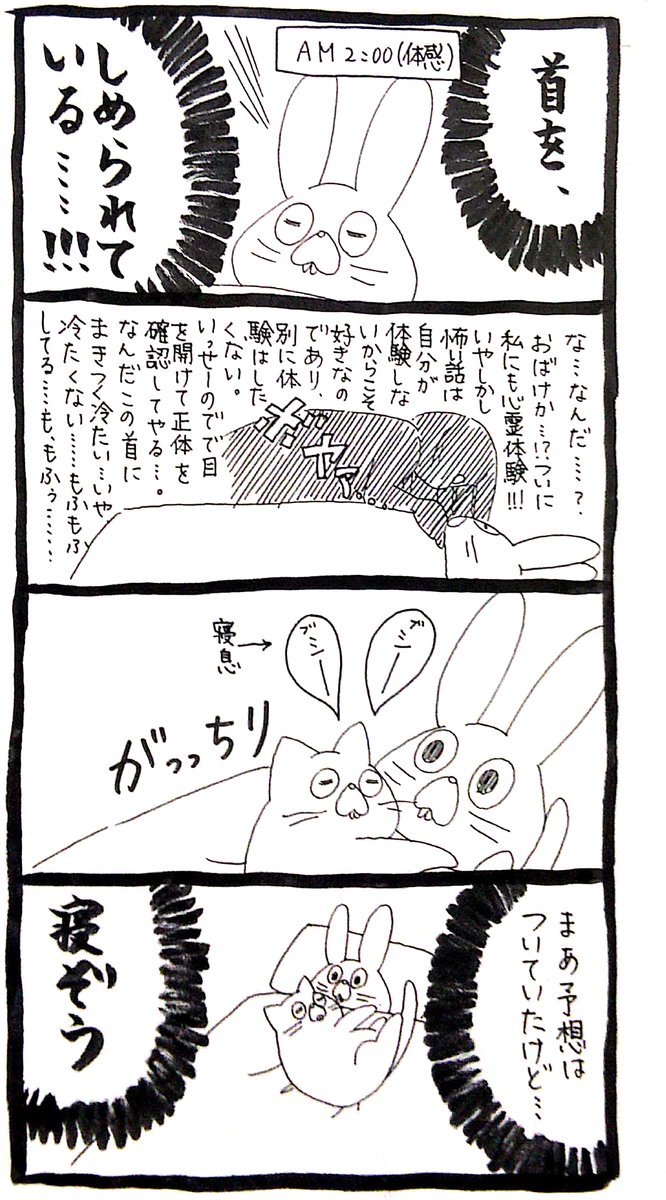 AM2:00(体感)
首を、
しめられて
いる……!!!
な…なんだ……?
おばけか…!?ついに
私にも心霊体験!!!
いやしかし
怖い話は
自分が
体験しな
いからこそ
好きなの
であり、
別に体
験はした
くない。
いっせーのでで目
を開けて正体を
確認してやる…。
なんだこの首に
まきつく冷たい…いや、
冷たくない……もふもふ
してる……も、もふぅ……
ボヤァ…
ブシーー
ブシーー
寝息→
がっっちり
まあ予想は
ついていたけど…
寝ぞう